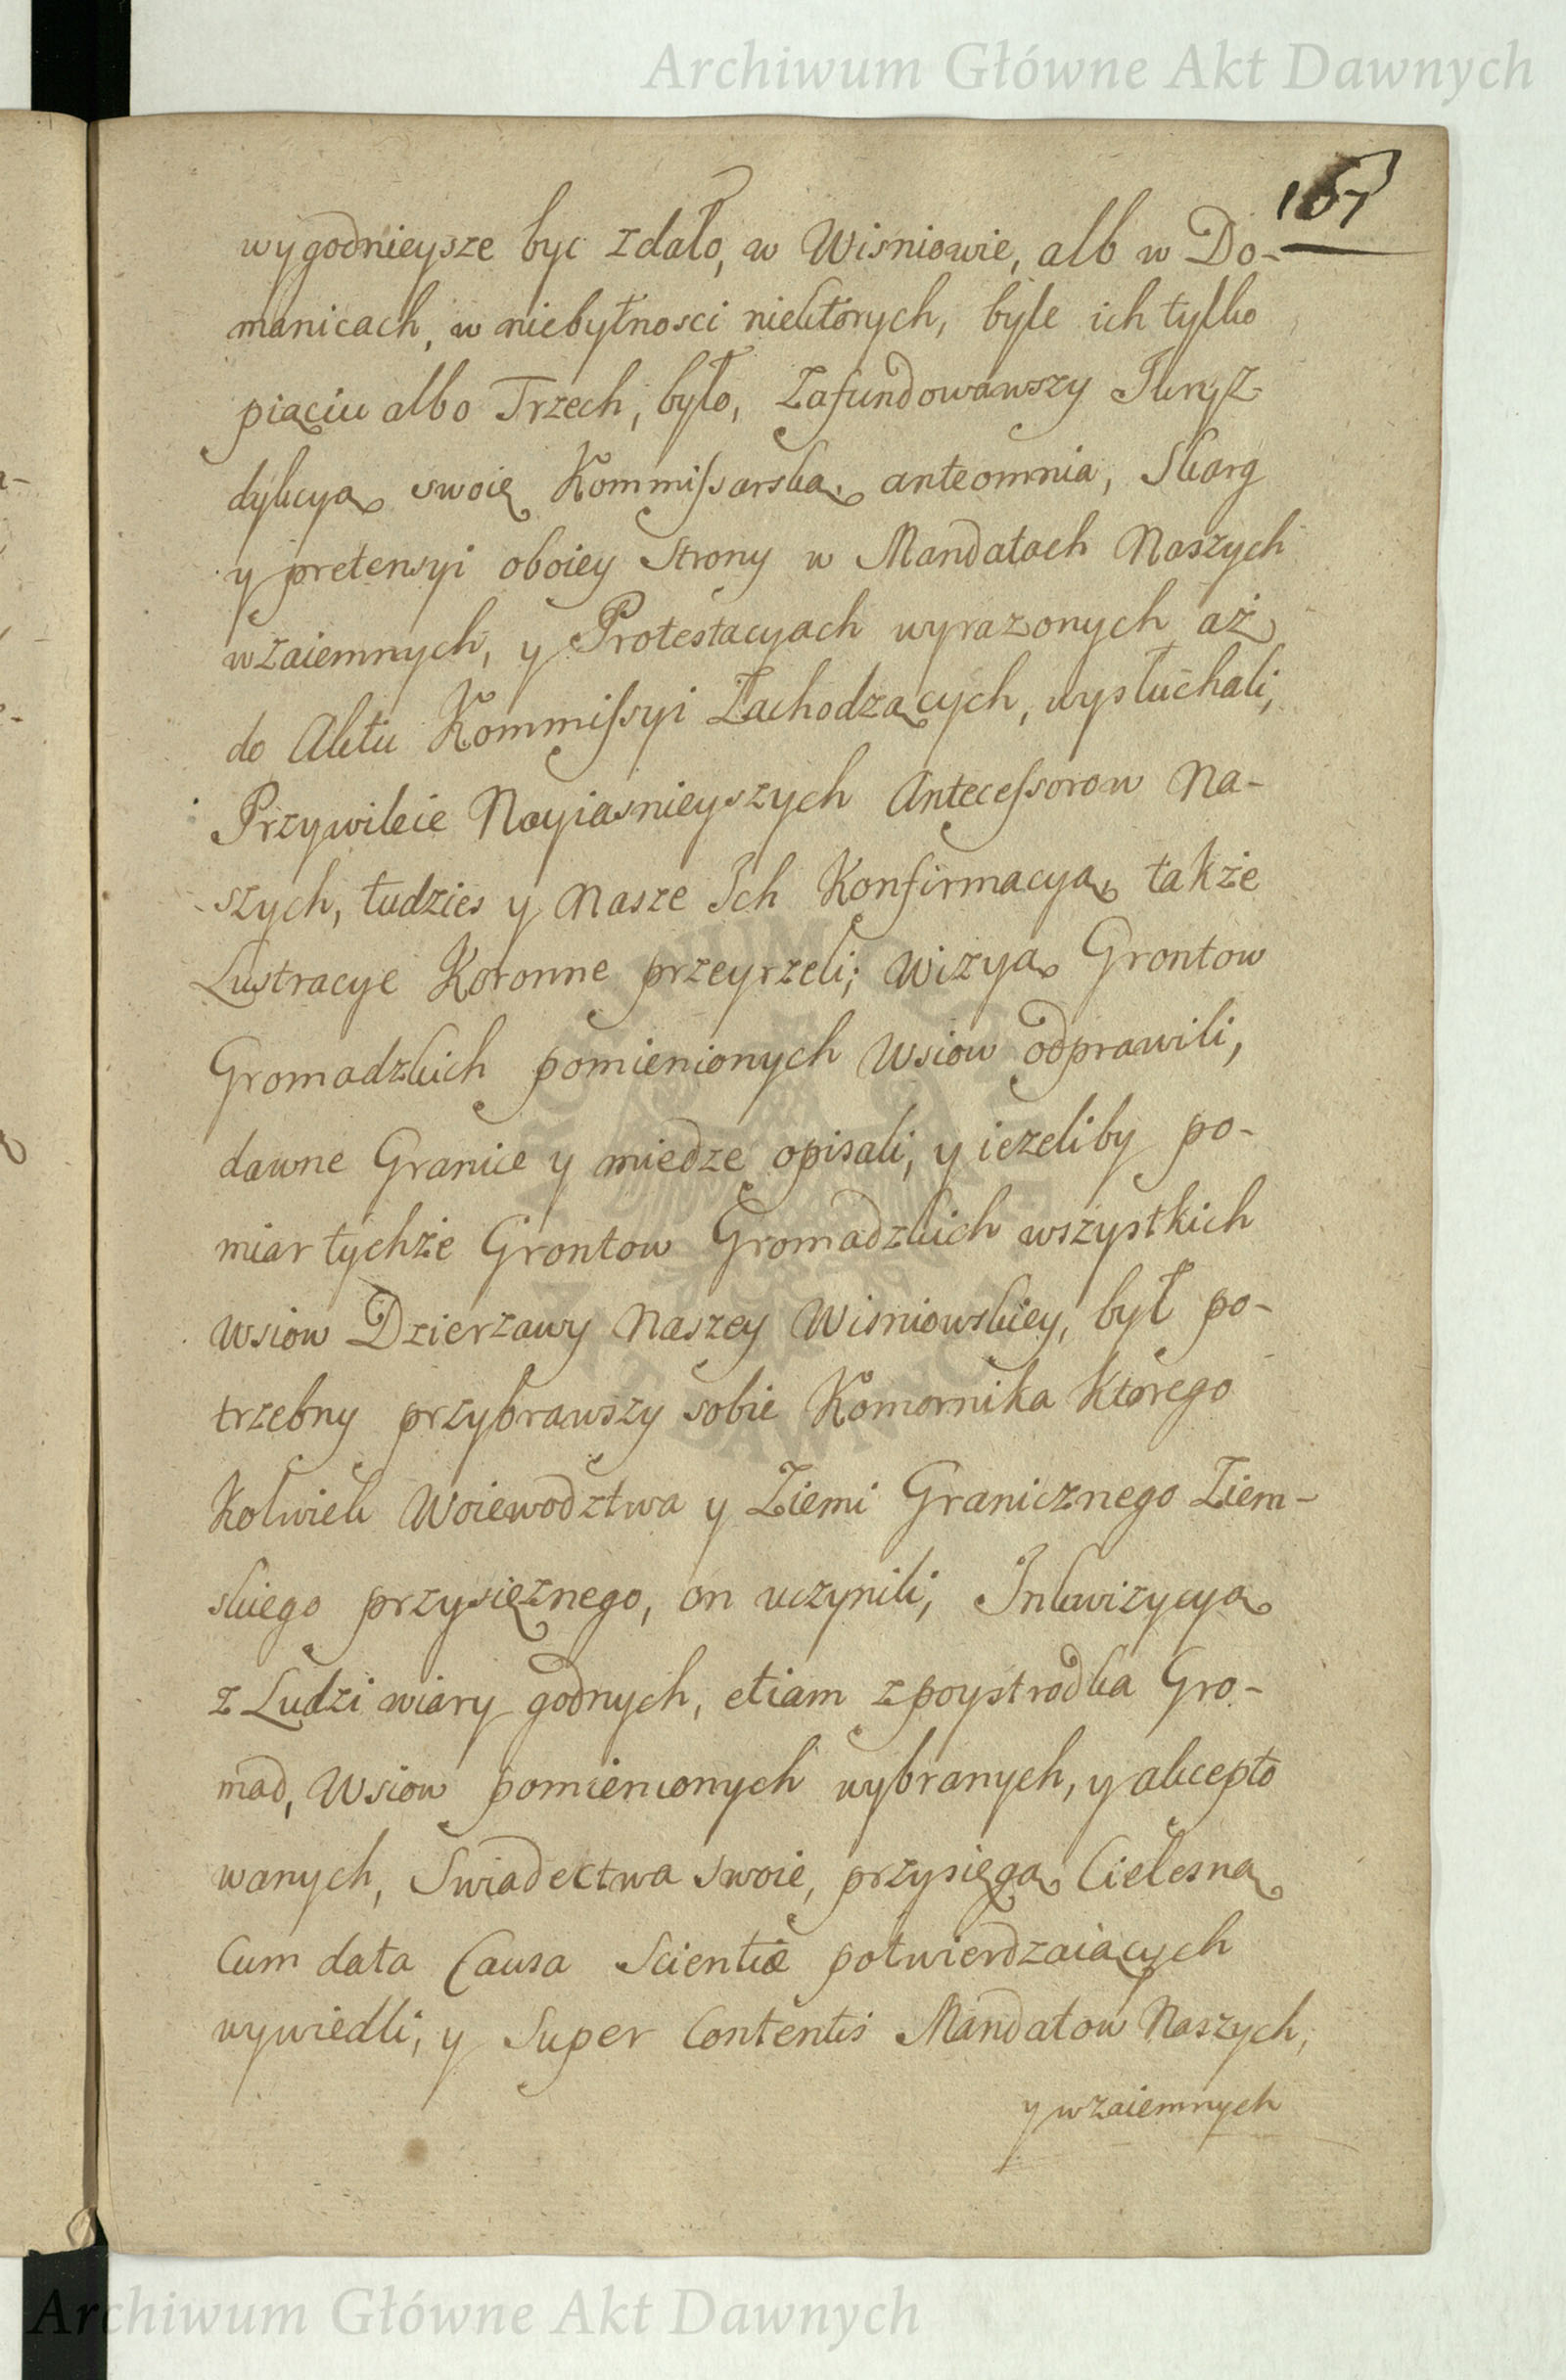 Archiwum Główne Akt Dawnych
167
wygodnieysze byc zdało, w Wisniowie, alb w Do-
manicach, w niebytnosci niektórych, byle ich tylko
piąciu albo Trzech, było, Zafundowawszy Juryz
dykcyą swoię Kommissarską, anteomnia, Skarg
y pretensyi oboiey Strony w Mandatach Naszych
wzaiemnych, y Protestacyach wyrazonych aż
do Aktu Kommissyi Zachodzących, wysłuchali,
Przywileie Nayiasnieyszych Antecessorow Na-
szych, tudzies y Nasze Ich Konfirmacyą, także
Lustracye Koronne przeyrzeli; Wizyą Grontow
Gromadzkich pomienionych Wsiow odprawili,
dawne Granice y miedze opisali, y iezeliby po-
miar tychże Grontow Gromadzkich wszystkich
Wsiow Dzierzawy Naszey Wisniowskiey, był po-
trzebny przybrawszy sobie Komornika Ktorego
Kolwiek Woiewodztwa y Ziemi Granicznego Ziem-
skiego przysięznego, on uczynili; Inkwizycyą
z Ludzi wiary godnych, etiam zpoystrodka Gro-
mad, Wsiow pomienionych wybranych, y akcepto
wanych, Swiadectwa swoie, przysięgą Cielesną
Cum data Causa Scientiæ potwierdzaiących
wywiedli, y Super Contentis Mandatow Naszych,
y wzaiemnych
Archiwum Główne Akt Dawnych